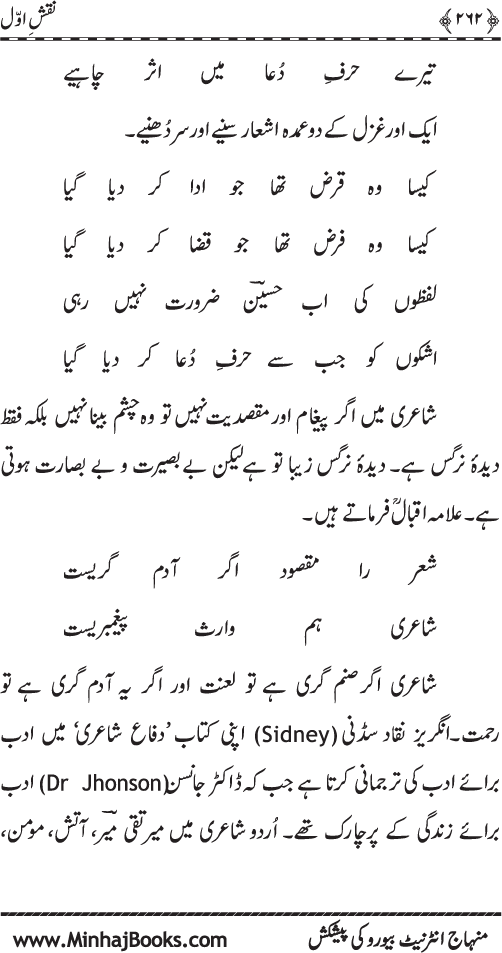 ﴿۲۶۲﴾ نقشِ اوّل
تیرے حرفِ دُعا میں اثر چاہیے
ایک اور غزل کے دو عمدہ اشعار سنیے اور سر دُھنیے۔
کیسا وہ قرض تھا جو ادا کر دیا گیا
کیسا وہ فرض تھا جو قضا کر دیا گیا
لفظوں کی اب حسینؔ ضرورت نہیں رہی
اشکوں کو جب سے حرفِ دُعا کر دیا گیا
شاعری میں اگر پیغام اور مقصدیت نہیں تو وہ چشم بینا نہیں بلکہ فقط
دیدۂ نرگس ہے۔ دیدۂ نرگس زیبا تو ہے لیکن بے بصیرت و بے بصارت ہوتی
ہے۔ علامہ اقبالؒ فرماتے ہیں۔
شعر را مقصود اگر آدم گریست
شاعری ہم وارث پیغمبریست
شاعری اگر صنم گری ہے تو لعنت اور اگر یہ آدم گری ہے تو
رحمت۔ انگریز نقاد سڈنی (Sidney) اپنی کتاب ’دفاع شاعری‘ میں ادب
برائے ادب کی ترجمانی کرتا ہے جب کہ ڈاکٹر جانسن (Dr Jhonson) ادب
برائے زندگی کے پرچارک تھے۔ اُردو شاعری میں میر تقی میرؔ، آتش، مومن،
منہاج انٹرنیٹ بیورو کی پیشکش www.MinhajBooks.com